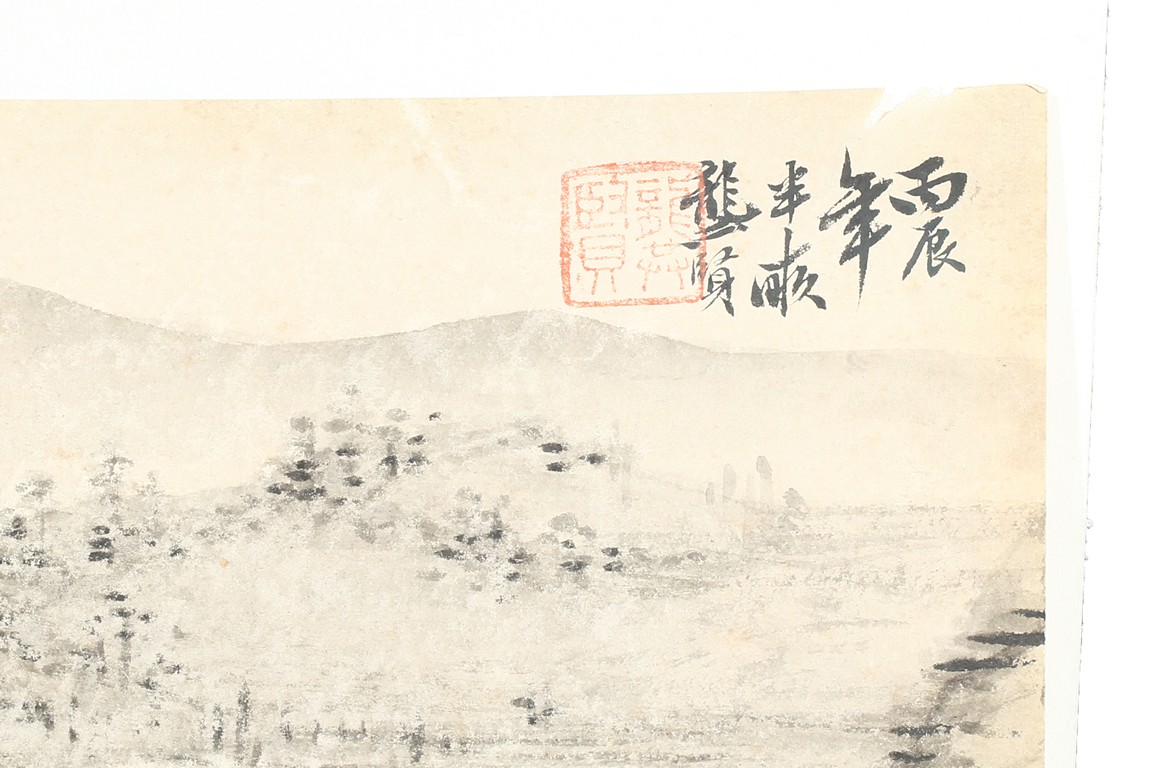 丙辰
年
半畝
龔賢
龔賢